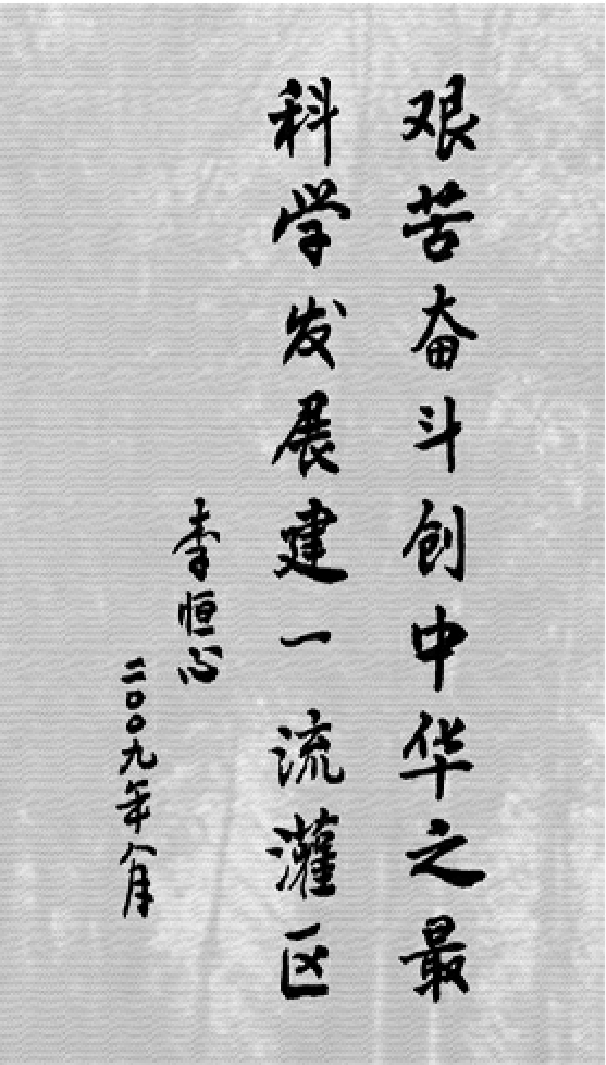 艰苦奋斗创中华之最
科学发展建一流灌区
李恒心
二〇〇九年八月